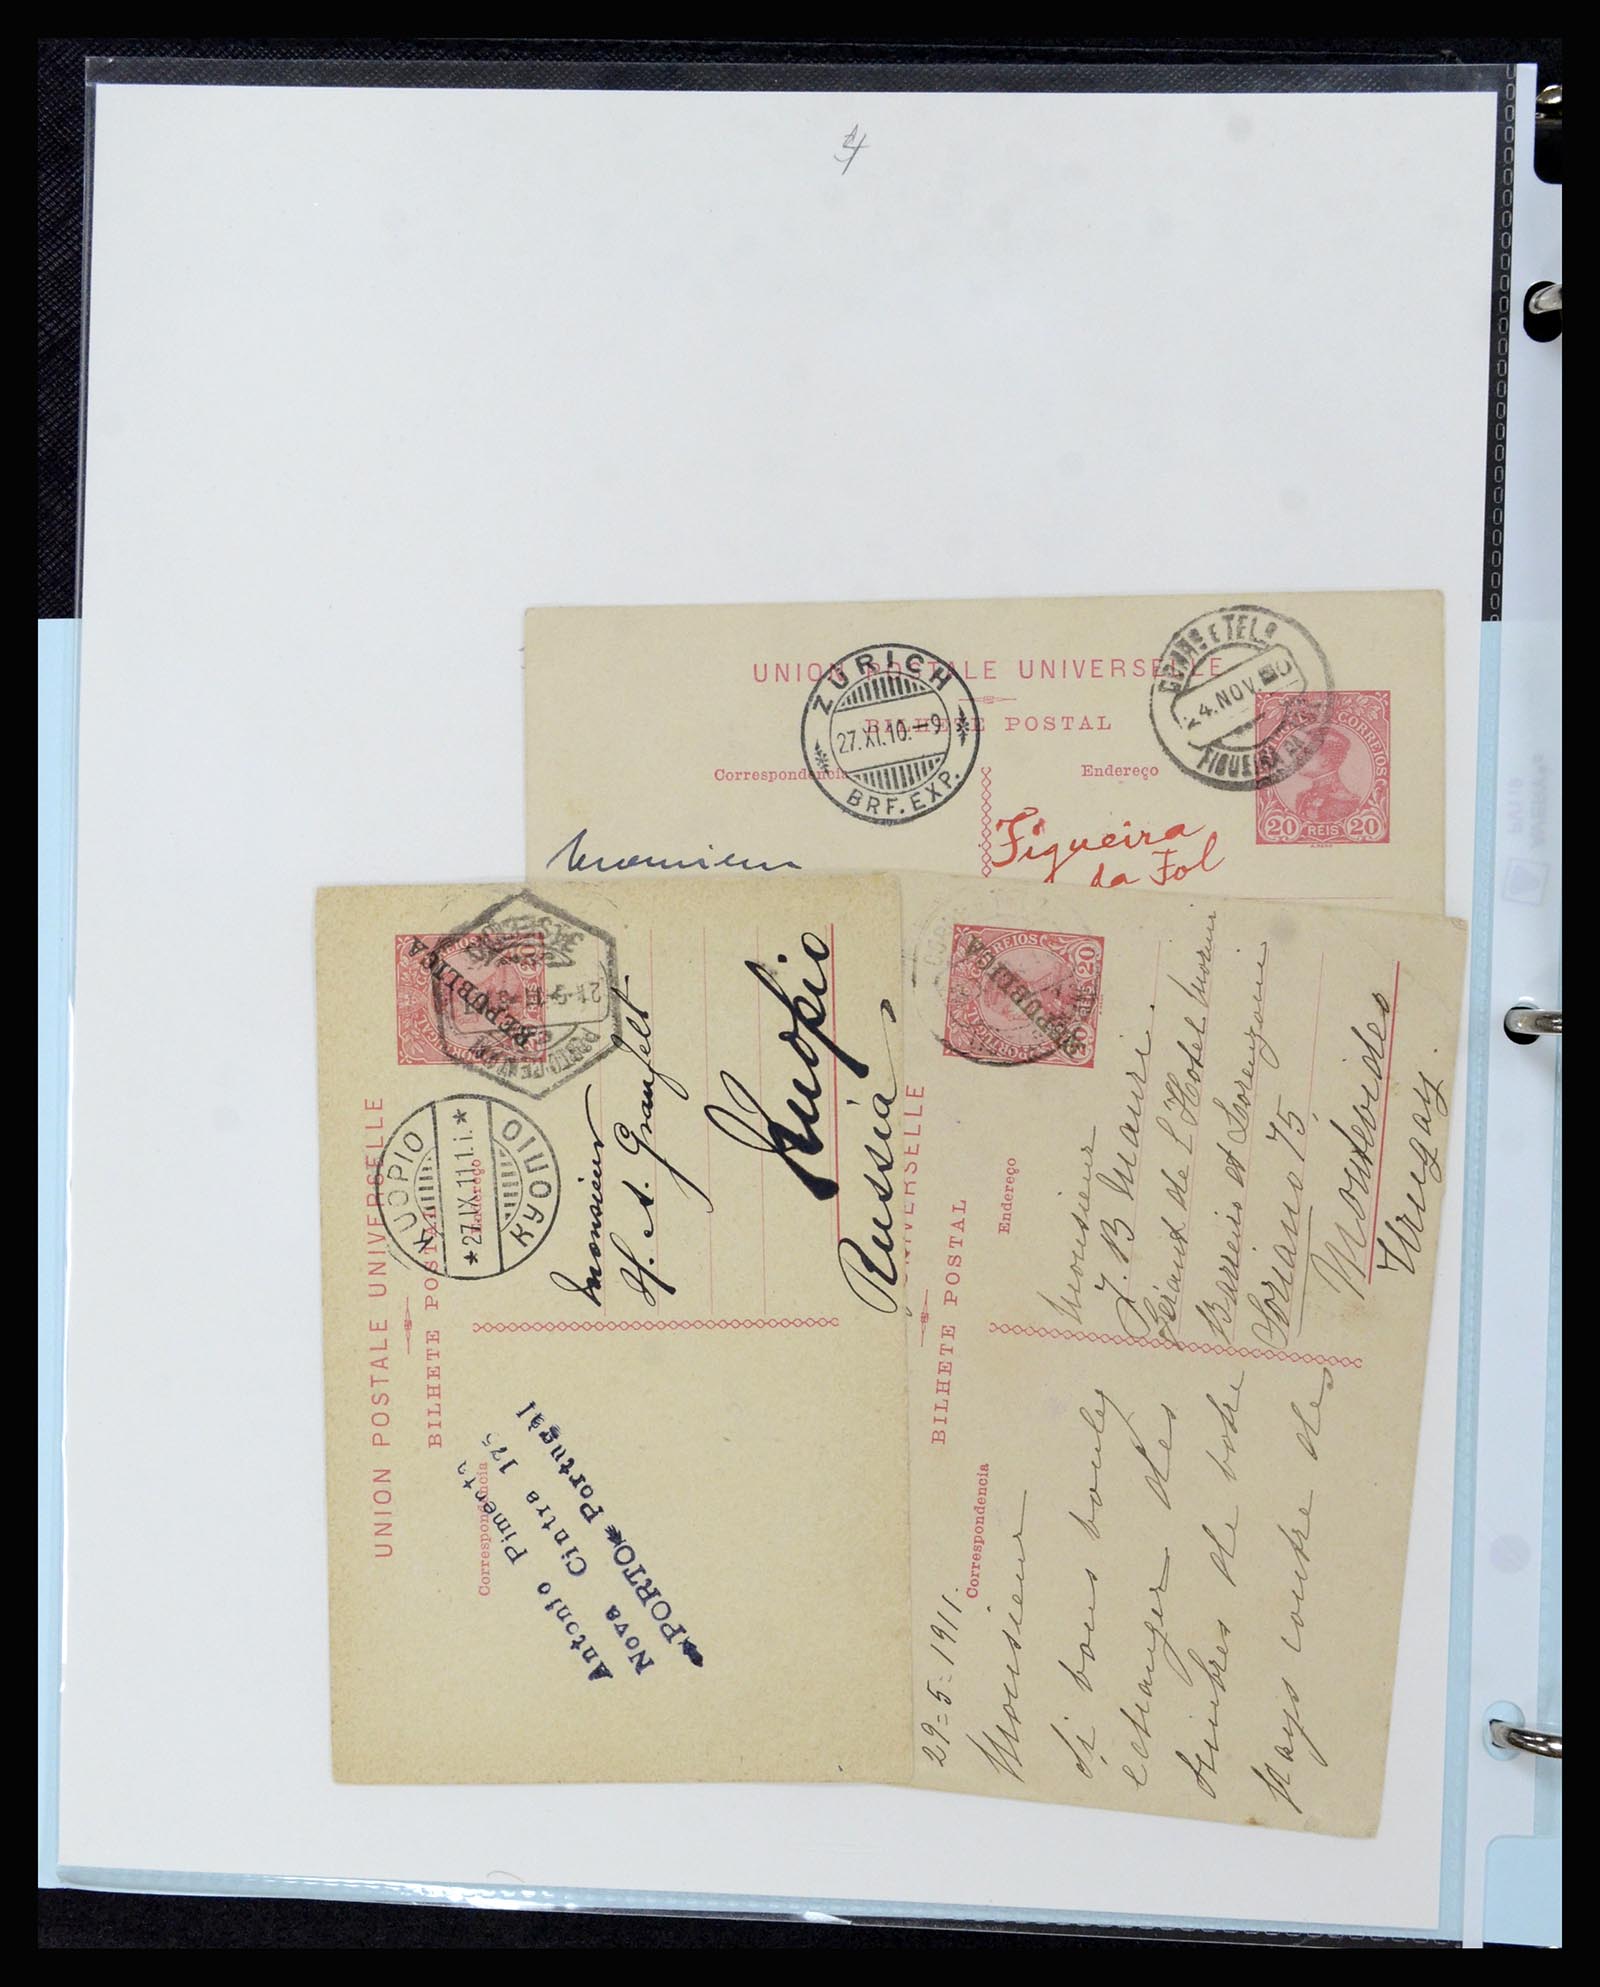 4
UNION POSTALE UNIVERSELLE
BILHETE POSTAL
Correspondencia
Endereço
ZÜRICH
27.XI.10.-9
BRF. EXP.
CORRº E TELº
24.NOV.10
FIGUEIRA DA
CORREIOS
20 REIS 20
Monsieur
Figueira
da Fol
REPUBLICA
CORREIOS
PORTO CENTRAL
UNION POSTALE UNIVERSELLE
BILHETE POSTAL
Endereço
Correspondencia
KUOPIO
*27.IX.11.1.i.*
КУОПІО
Monsieur
H. A. Granfelt
Kuopio
Russia
Antonio Pimenta
Nova Cintra 175
*PORTO* Portugal
REPUBLICA
PORTUGAL CORREIOS
20
UNIVERSELLE
BILHETE POSTAL
Endereço
Correspondencia
Monsieur
J. B. Mauri.
Gérant de L'Hotel
Barreiro et Lorenzoni
Soriano 75
Montevideo
Uruguay
29-5-1911.
Monsieur
Si vous voulez
echanger des
timbres de votre
pays contre des